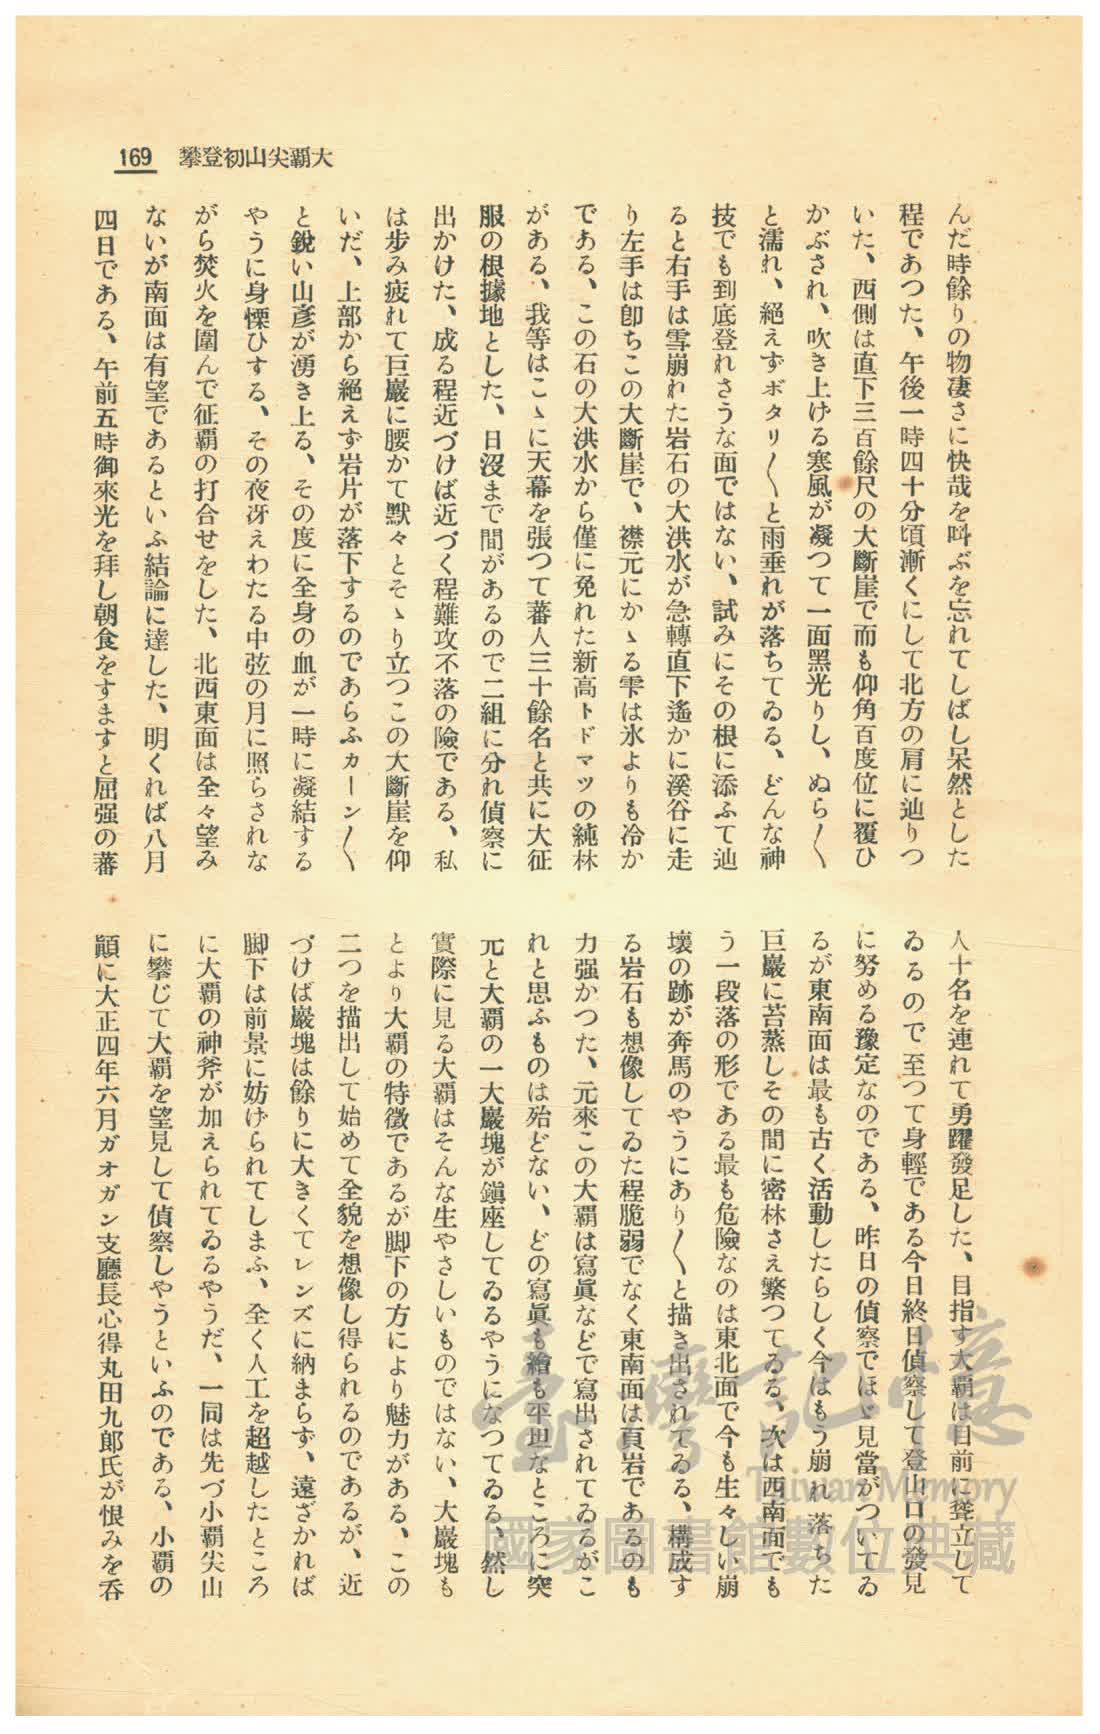 大霸尖山初登攀 169
んだ時餘りの物凄さに快哉を叫ぶを忘れてしばし呆然とした
程であつた、午後一時四十分頃漸くにして北方の肩に辿りつ
いた、西側は直下三百餘尺の大斷崖で而も仰角百度位に覆ひ
かぶされ、吹き上げる寒風が凝つて一面黑光りし、ぬら〳〵
と濡れ、絕えずボタリ〳〵と雨垂れが落ちてゐる、どんな神
技でも到底登れさうな面ではない、試みにその根に添ふて辿
ると右手は雪崩れた岩石の大洪水が急轉直下遙かに溪谷に走
り左手は卽ちこの大斷崖で、襟元にかゝる雫は氷よりも冷か
である、この石の大洪水から僅に免れた新高トドマツの純林
がある、我等はこゝに天幕を張つて蕃人三十餘名と共に大征
服の根據地とした、日沒まで間があるので二組に分れ偵察に
出かけた、成る程近づけば近づく程難攻不落の險である、私
は步み疲れて巨巖に腰かて默々とそゝり立つこの大斷崖を仰
いだ、上部から絕えず岩片が落下するのであらふカーン〳〵
と銳い山彥が湧き上る、その度に全身の血が一時に凝結する
やうに身慄ひする、その夜冴えわたる中弦の月に照らされな
がら焚火を圍んで征覇の打合せをした、北西東面は全々望み
ないが南面は有望であるといふ結論に達した、明くれば八月
四日である、午前五時御來光を拜し朝食をすますと屈强の蕃
人十名を連れて勇躍發足した、目指す大覇は目前に聳立して
ゐるので至つて身輕である今日終日偵察して登山口の發見
に努める豫定なのである、昨日の偵察でほゞ見當がついてゐ
るが東南面は最も古く活動したらしく今はもう崩れ落ちた
巨巖に苔蒸しその間に密林さえ繁つてゐる、次は西南面でも
う一段落の形である最も危險なのは東北面で今も生々しい崩
壞の跡が奔馬のやうにあり〳〵と描き出されてゐる、構成す
る岩石も想像してゐた程脆弱でなく東南面は頁岩であるのも
力强かつた、元來この大覇は寫眞などで寫出されてゐるがこ
れと思ふものは殆どない、どの寫眞も繪も平坦なところに突
兀と大覇の一大巖塊が鎭座してゐるやうになつてゐる、然し
實際に見る大覇はそんな生やさしいものではない、大巖塊も
とより大覇の特徵であるが脚下の方により魅力がある、この
二つを描出して始めて全貌を想像し得られるのであるが、近
づけば巖塊は餘りに大きくてレンズに納まらず、遠ざかれば
脚下は前景に妨げられてしまふ、全く人工を超越したところ
に大覇の神斧が加えられてゐるやうだ、一同は先づ小覇尖山
に攀じて大覇を望見して偵察しやうといふのである、小覇の
顚に大正四年六月ガオガン支廳長心得丸田九郎氏が恨みを吞
臺灣記憶
Taiwan Memory
國家圖書館數位典藏